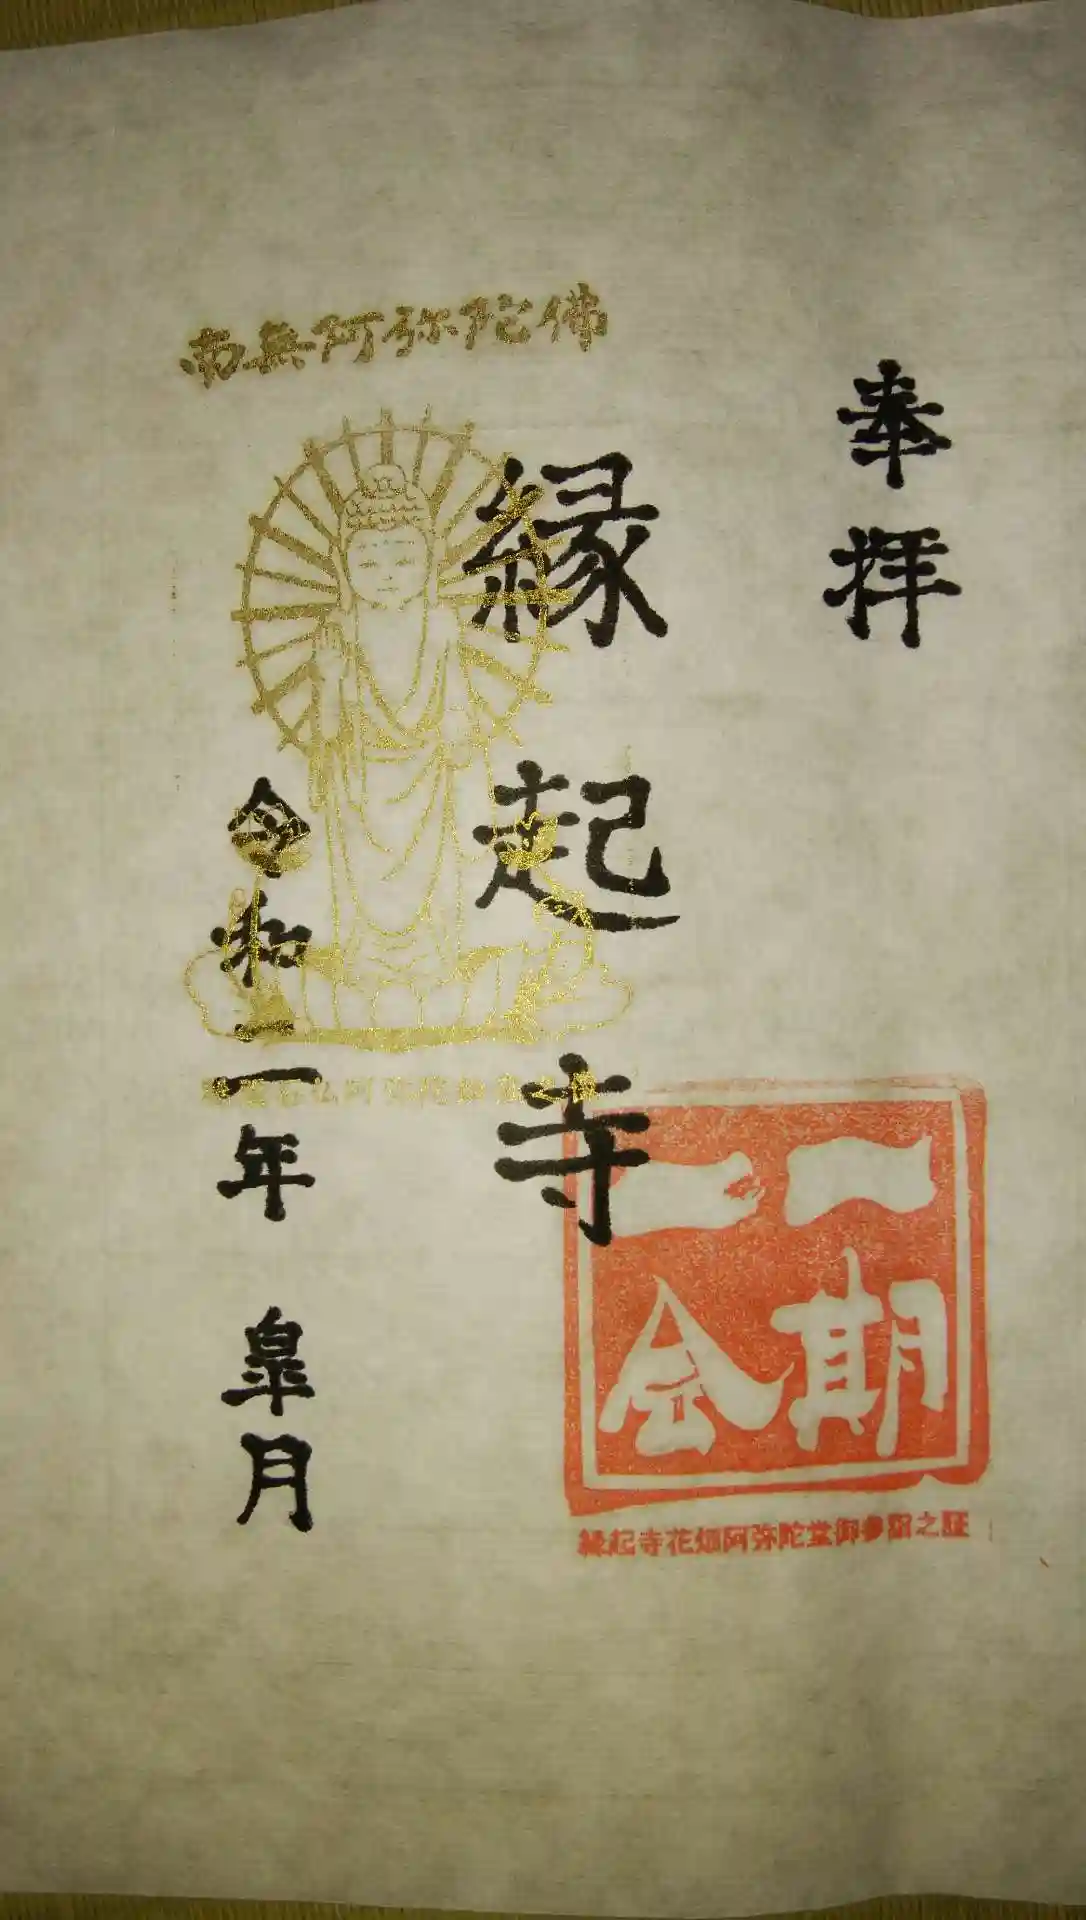 奉拝
縁起寺
南無阿弥陀佛
令和二年 皐月
一期
一会
縁起寺花畑阿弥陀堂御参詣之証